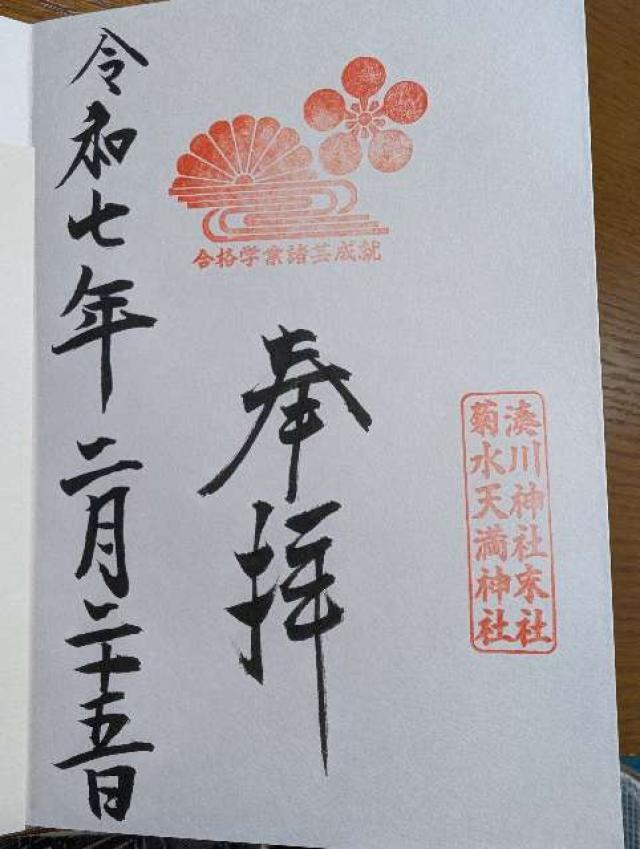 合格学業諸芸成就
湊川神社末社
菊水天満神社
奉拝
令和七年二月二十五日